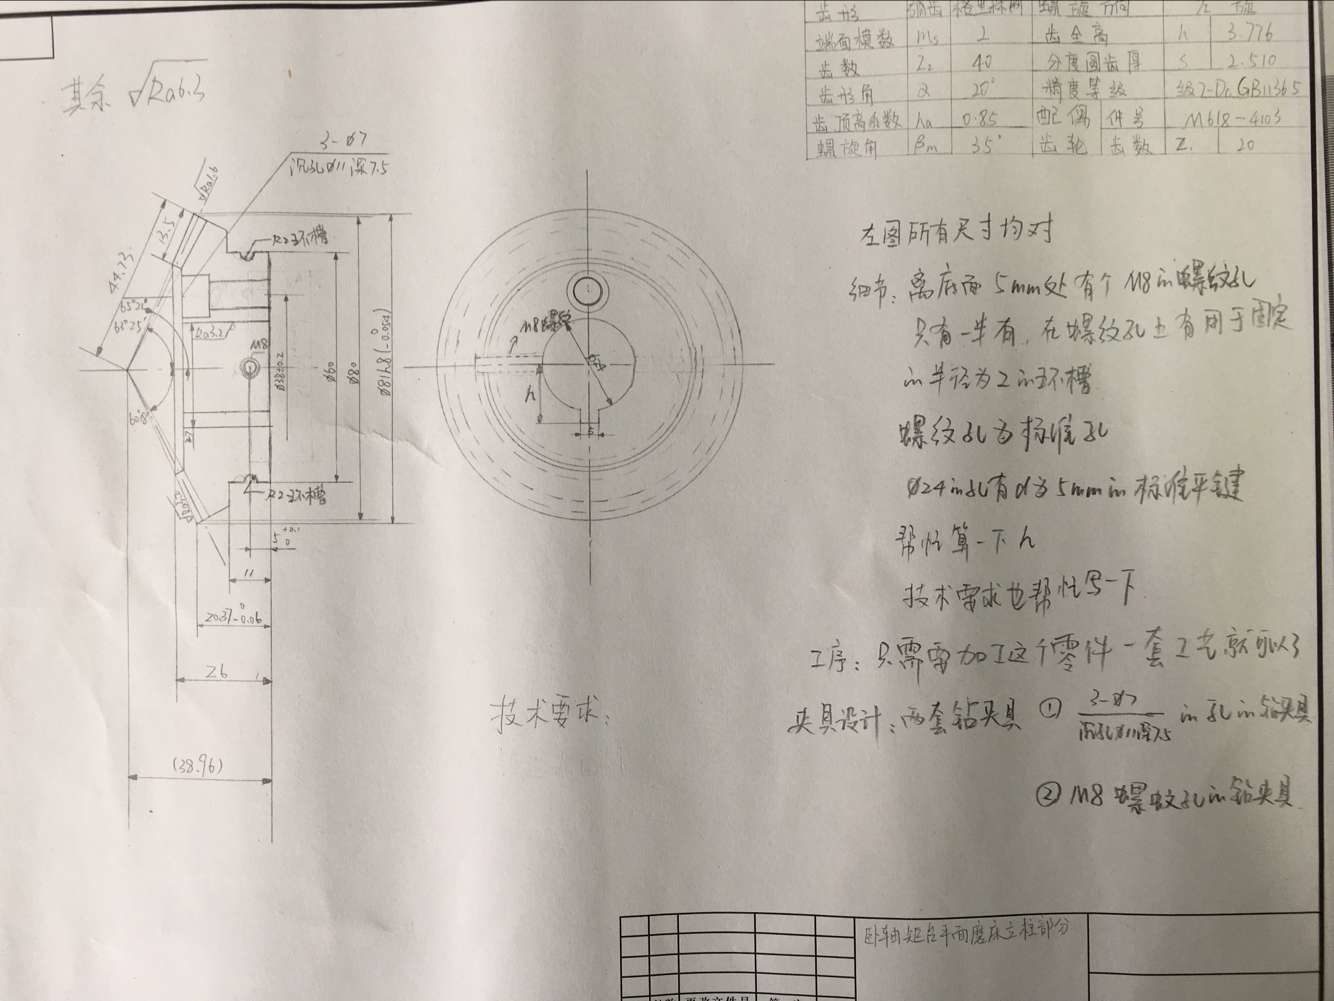 其余 √Ra6.3
齿形
螺旋方向
端面模数 ms 2 齿全高 h 3.776
齿数 Z2 40 分度圆齿厚 s 2.510
齿形角 α 20° 精度等级 级7-Dc GB11365
齿顶高系数 ha 0.85 配偶 件号 M618-4103
螺旋角 βm 35° 齿轮 齿数 Z1 20
3-Ø7
沉孔Ø11深7.5
√Ra1.6
R2环槽
13.5
44.73
65°21'
61°25'
Ra3.2
M8
Ø38±0.2
Ø60
Ø80
60°8'
27
R2环槽
5 +0.1 0
11
26
(38.96)
M8螺纹
Ø24
h
5
左图所有尺寸均对
细节:离底面5mm处有个M8的螺纹孔
只有一半有,在螺纹孔上有用于固定
的半径为2的环槽
螺纹孔为标准孔
Ø24的孔有d为5mm的标准平键
帮忙算一下h
技术要求也帮忙写一下
工序:只需要加工这个零件一套工艺就可以了
夹具设计:两套钻夹具 ① 3-Ø7 沉孔Ø11深7.5 的孔的钻夹具
② M8螺纹孔的钻夹具
技术要求:
卧轴矩台平面磨床立柱部分